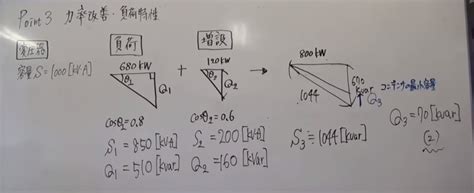 Point 3 力率改善・負荷特性
変圧器
容量 S=1000[kV·A]
負荷
680kW
θ₁
Q₁
cosθ₁=0.8
S₁=850[kV·A]
Q₁=510[kvar]
+
増設
120kW
θ₂
Q₂
cosθ₂=0.6
S₂=200[kV·A]
Q₂=160[kvar]
→
800kW
1044
670
kvar
コンデンサの最小容量
Q₃
S₃=1044[kV·A]
Q₃=70[kvar]
(2)